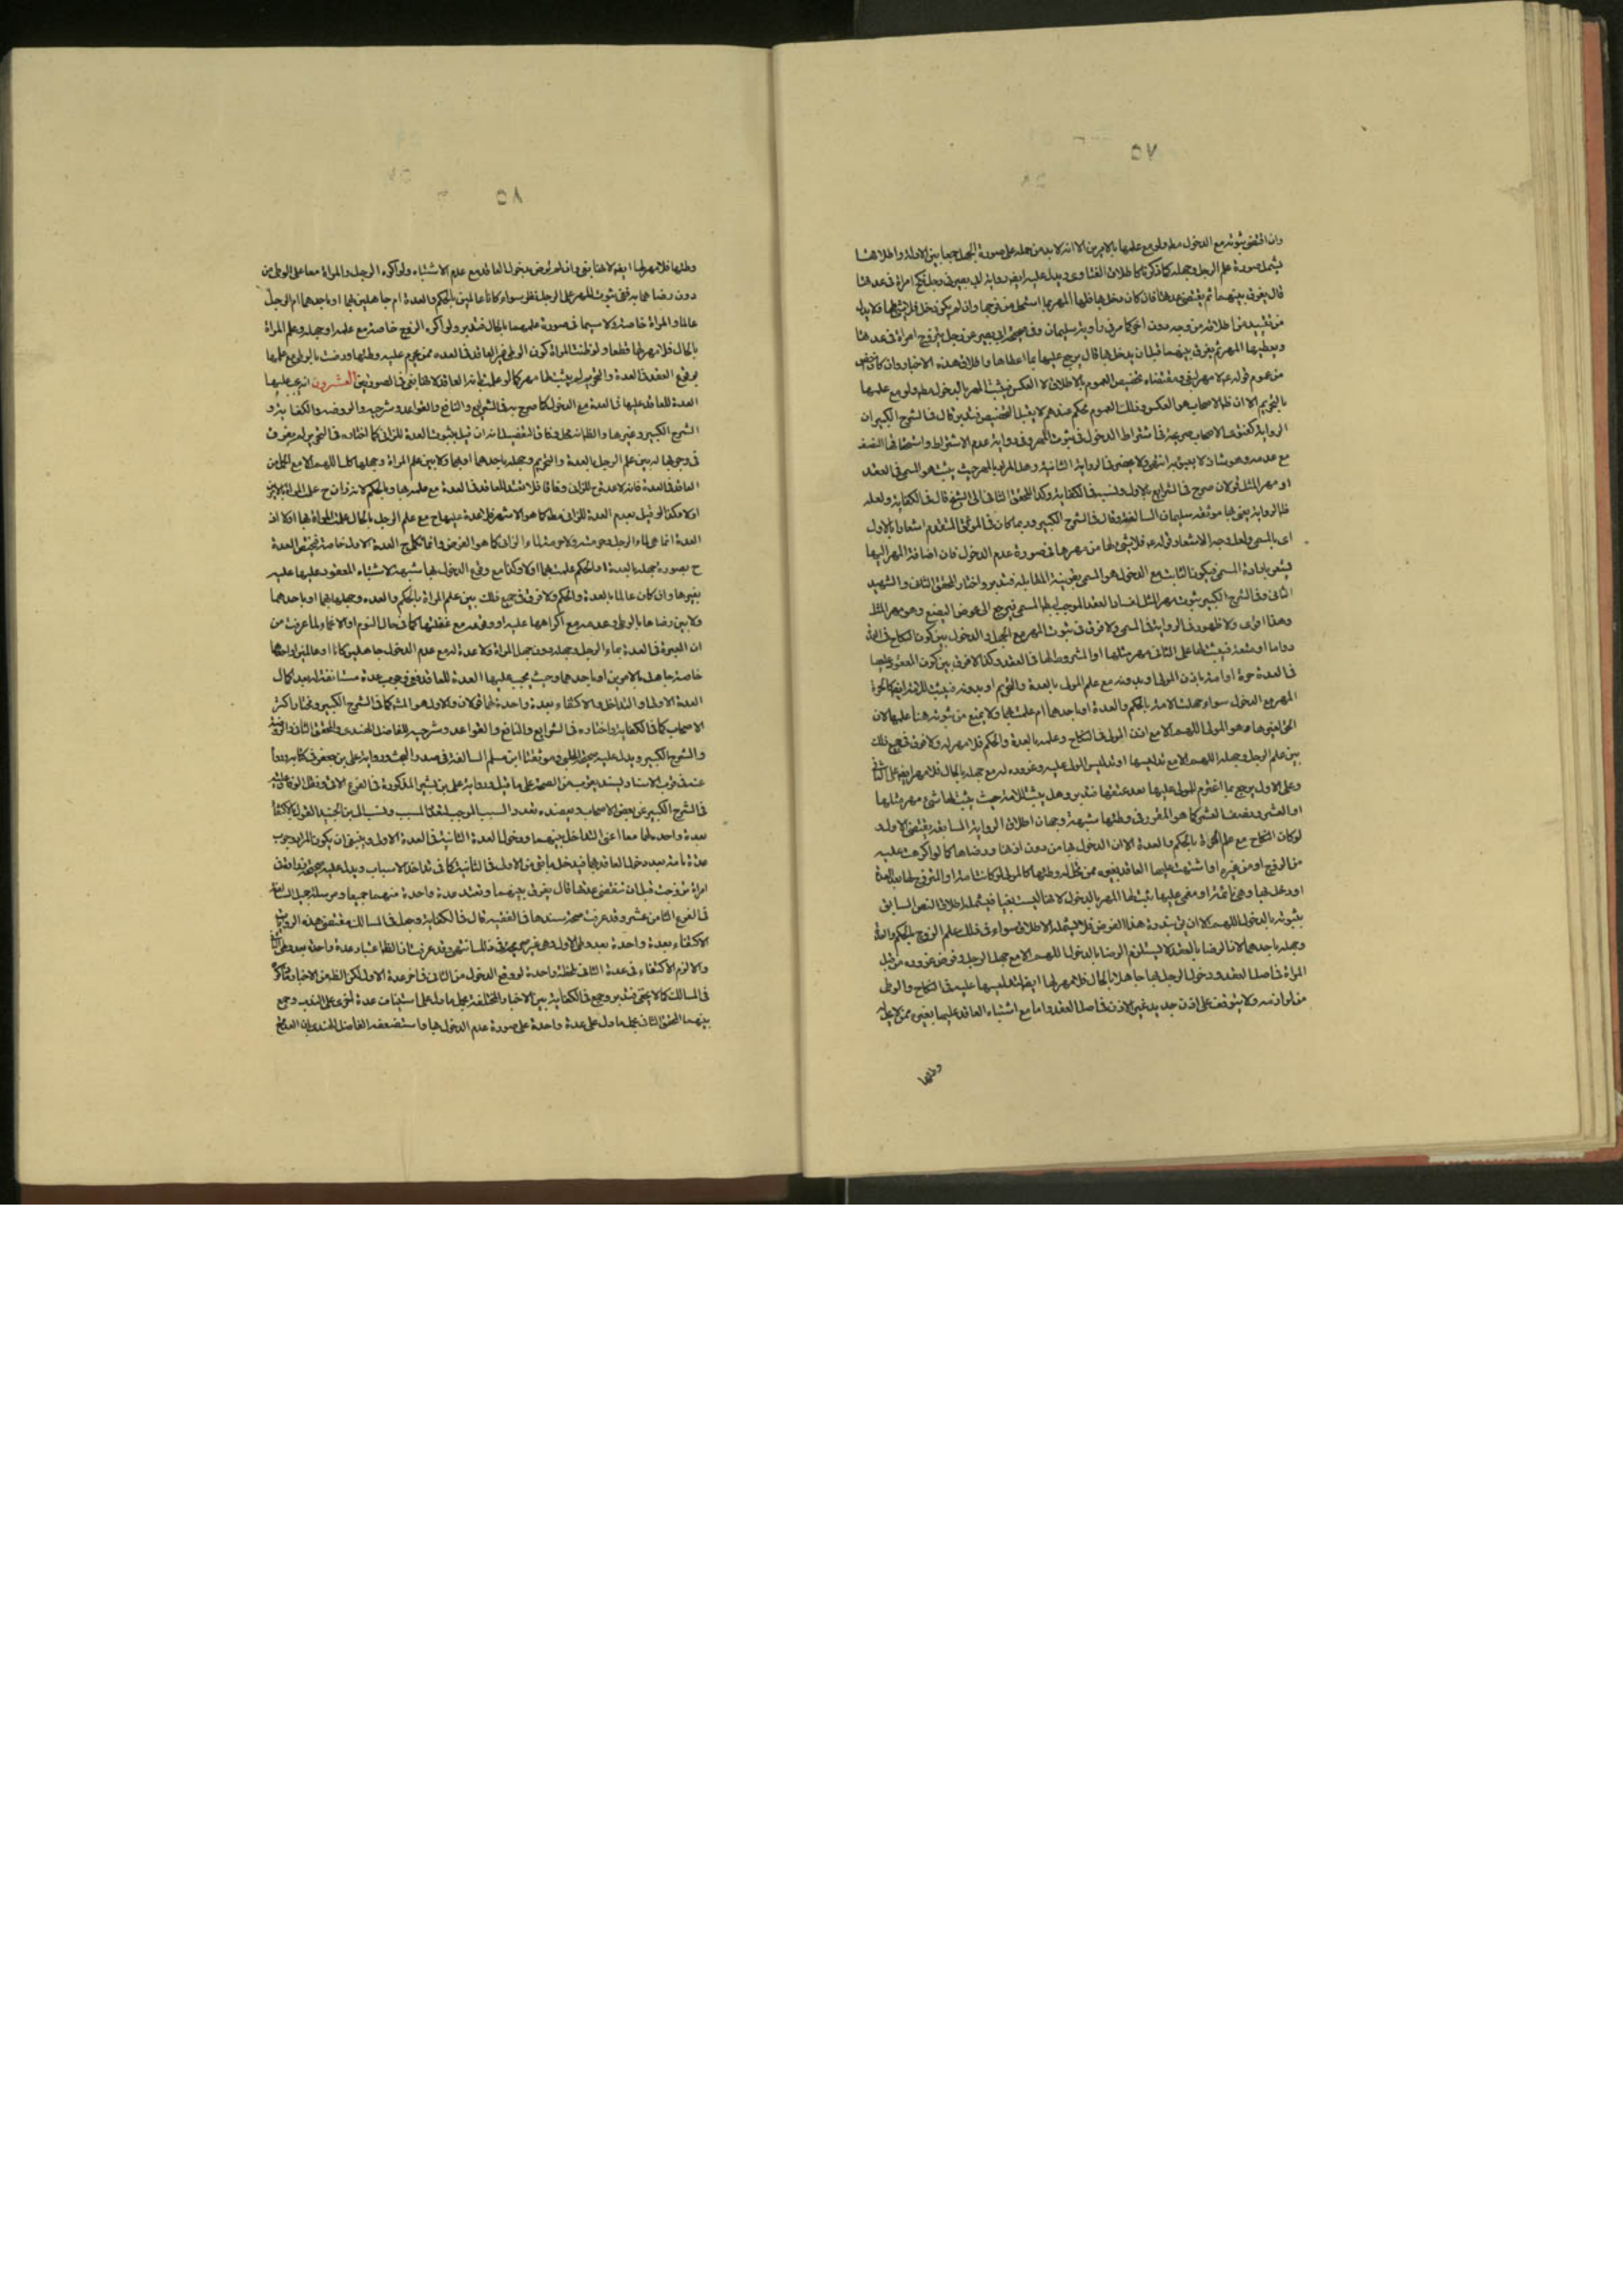 ٥٧
وان اقتضى ثبوته مع الدخول مط ولو مع علمها بالامرين الا انه لا بد من حمله على صورة الجهل جمعا بين الادلة واطلاقها
يشمل صورة علم الرجل وجهله كما ذكرنا كاطلاق الفتاوى ويدل عليه ايضا رواية ابى بصير فى رجل نكح امراة فى عدتها
قال يفرق بينهما ثم يقتضى عدتها فان كان دخل بها فلها المهر بما استحل من فرجها وان لم يكن دخل فلا شئ لها فلا بد له
من تقييد من اطلاقه من وجه دون اخر كما مر فى رواية سليمان وفى صحيحة ابى بصير عن رجل يتزوج امراة فى عدتها
ويعطيها المهر ثم يفرق بينهما قبل ان يدخل بها قال يرجع عليها بما اعطاها واطلاق هذه الاخبار وان كان
من عموم قوله لا مهر لبغى ومقتضاه تخصيص العموم بالاطلاق لا العكس فيثبت المهر بالدخول مط ولو مع علمها
بالتحريم الا ان ظ الاصحاب هو العكس وذلك العموم محكم عندهم لا يقبل التخصيص فتدبر قال فى الشرح الكبير ان
الرواية كفتوى الاصحاب صريحة فى اشتراط الدخول فى ثبوت المهر وفى رواية عدم الاشتراط واستحقاقها النصف
مع عدمه وهو شاذ لا يعبؤ به انتهى ولا يحضرنى الرواية الثانية وهل المراد بالمهر حيث يثبت هو المسمى فى العقد
او مهر المثل قولان صرح فى الشرايع بالاول ونسب فى الكفاية وكذا المحقق الثانى الى الشيخ قال فى الكفاية ولعله
ظ الرواية يعنى بها موثقة سليمان السالفة وقال فى الشرح الكبير وربما كان فى الموثق المتقدم اشعارا بالاول
اى بالمسمى ولعل وجه الاشعار قوله ع فلا شئ لها من مهرها فى صورة عدم الدخول فان اضافة المهر اليها
يشعر بارادة المسمى فيكون الثابت مع الدخول هو المسمى بقرينة المقابلة فتدبر واختار المحقق الثانى والشهيد
الثانى وفى الشرح الكبير ثبوت مهر المثل لفساد العقد الموجب لبطلان المسمى فيرجع الى عوض البضع وهو مهر المثل
وهذا اقوى ولا ظهور فى الرواية فى المسمى ولا فرق فى ثبوت المهر مع الجهل والدخول بين كون النكاح فى العدة
دواما او متعة فيثبت لها على الثانى مهر مثلها او المشروط لها فى العقد وكذا لا فرق بين كون المعقود عليها
فى العدة حرة او امة باذن المولى او بدونه مع علم المولى بالعدة والتحريم او بدونه فيثبت للامة ايضا كالحرة
المهر مع الدخول سواء جهلت الامة بالحكم والعدة او باحدهما ام علمت بهما ولا يمنع من ثبوته هنا علمها لان
الحق لغيرها وهو المولى اللهم الا مع اذن المولى فى النكاح وعلمه بالعدة والحكم فلا مهر له ولا فرق فى جميع ذلك
بين علم الرجل وجهله اللهم الا مع تدليسها او تدليس المولى عليه وغروره له مع جهله بالحال فلا مهر ايضا على
وعلى الاول يرجع بما اغترم للمولى عليها بعد عتقها فتدبر وهل يثبت للامة حيث يثبت لها شئ مهر مثلها
او العشر ونصف العشر كما هو المقرر فى وطئها شبهة وجهان اطلاق الرواية السابقة يقتضى الاول و
لو كان النكاح مع علم المراة بالحكم والعدة الا ان الدخول بها من دون اذنها ورضاها كما لو اكرهت عليه
من الزوج او من غيره او اشتبهت عليها العاقد بغيره ممن يحل له وطئها كالمولى لو كانت امة او المتزوج لها بعد العدة
او دخل بها وهى نائمة او مغمى عليها يثبت لها المهر بالدخول لانها ليست بغيا فيشمله اطلاق النص السابق
بثبوته بالدخول اللهم الا ان يق بندرة هذا الفرض فلا يشمله الاطلاق سواء فى ذلك علم الزوج بالحكم والعدة
وجهله باحدهما لان الرضا بالعقد لا يستلزم الرضا بالدخول اللهم الا مع جهل الرجل وفرض غروره من قبل
المراة فى اصل العقد ودخول الرجل بها جاهلا بالحال فلا مهر لها ايضا لتدليسها عليه فى النكاح والوطى
من لوازمه ولا يتوقف على اذن جديد غير الاذن فى اصل العقد واما مع اشتباه العاقد عليها بغيره ممن لا يحل له
وطئها
٥٨
وطئها فلا مهر لها ايضا لانها بغى وان لم نفرض بدخول العاقد مع عدم الاشتباه ولو اكره الرجل والمراة معا على الوطى من
دون رضا هما به ففى ثبوت المهر على الرجل نظر سواء كانا عالمين بالحكم والعدة ام جاهلين بهما او باحدهما ام الرجل
عالما والمراة خاصة ولا سيما فى صورة علمهما بالحال فتدبر ولو اكره الزوج خاصة مع علمه او جهله وعلم المراة
بالحال فلا مهر لها قطعا ولو ظنت المراة كون الوطى غير العاقد فى العدة ممن يحرم عليه وطئها ورضيت بالوطى مع علمها
بوقوع العقد فى العدة والتحريم لم يثبت لها مهر كما لو علمت بانه العاقد لانها بغى فى الصورتين العشرون انه يجب عليها
العدة للعاقد عليها فى العدة مع الدخول كما صرح به فى الشرايع والنافع والقواعد وشرحيه والروضة والكفاية و
الشرح الكبير وغيرها والظ انه محل وفاق لتفصيل انه ان قيل بثبوت العدة للزانى كما اختاره فى التحرير لم يفرق
فى وجوبها له بين علم الرجل بالعدة والتحريم وجهله باحدهما او بهما ولا بين علم المراة وجهلها كل اللهم الا مع
العاقد فى العدة فانه لا عدة ح للزانى وفاقا فلا تعتد للعاقد فى العدة مع علمه بها وبالحكم لانه زان ح علمت المراة بالامرين
او لا وكذا لو قيل بعدم العدة للزانى مط كما هو الاشهر فلا عدة عليها ح مع علم الرجل بالحال علمت المراة بها او لا اذ
العدة انما هى لماء الرجل وحرمته ولا حرمة لماء الزانى كما هو الفرض وانما تكمل ح العدة الاولى خاصة فيختص العدة
ح بصورة جهله بالعدة او الحكم علمت هى او لا وكذا مع وقوع الدخول بها شبهة لاشتباه المعقود عليها عليه
بغيرها وان كان عالما بالعدة والحكم ولا فرق فى جميع ذلك بين علم المراة بالحكم والعدة وجهلها بهما او باحدهما
ولا بين رضاها بالوطى وعدمه مع اكراهها عليه او وقوعه مع غفلتها كما فى حال النوم او الاغماء لما عرفت من
ان العبرة فى العدة بماء الرجل وجهله دون جهل المراة ولا عدة له مع عدم الدخول جاهلين كانا او عالمين او احدهما
خاصة جاهلا بالامرين او باحدهما وحيث يجب عليها العدة للعاقد ففى وجوب عدة مستانفة له بعد اكمال
العدة الاولى او التداخل والاكتفاء بعدة واحدة لهما قولان والاول هو المش كما فى الشرح الكبير ومختار اكثر
الاصحاب كما فى الكفاية واختاره فى الشرايع والنافع والقواعد وشرحيه للفاضل الهندى والمحقق الثانى والروضة
والشرح الكبير ويدل عليه صحيحة الحلبى وموثقة ابن مسلم السالفة فى صدر البحث ورواية على بن جعفر فى كتابه
عنه فى قرب الاسناد بسند يقرب من الصحة على ما قيل ورواية على بن بشير المذكورة فى الفرع الاتى ونقل الوفاق عليه
فى الشرح الكبير عن بعض الاصحاب ويعضده تعدد السبب الموجب لتعدد المسبب ونسب الى ابن الجنيد القول بالاكتفاء
بعدة واحدة لهما معا اعنى التداخل بينهما ودخول العدة الثانية فى العدة الاولى وينبغى ان يكون المراد وجوب
عدة تامة بعد دخول العاقد بها فيدخل ما بقى من الاولى فى الثانية كما فى تداخل الاسباب ويدل عليه صحيحة زرارة فى
امراة تزوجت قبل ان تنقضى عدتها قال يفرق بينهما وتعتد عدة واحدة منهما جميعا ومرسلة جميل السابقة
فى الفرع الثامن عشر وقد عرفت صحة سندها فى الفقيه قال فى الكفاية وجعل فى المسالك مقتضى هذه الرواية
الاكتفاء بعدة واحدة بعد وطى الاول وهى غير صريحة فى ذلك انتهى وقد عرفت ان الظ اعتبار عدة واحدة بعد وطى الثانى
والا لزم الاكتفاء فى عدة الثانى بلحظة واحدة لو وقع الدخول من الثانى فى اخر عدة الاول لكن الظ من الاخبار
فى المسالك كما لا يخفى فتدبر وجمع فى الكفاية بين الاخبار المختلفة بحمل ما دل على استيناف عدة اخرى على الندب وجمع
بينهما المحقق الثانى بحمل ما دل على عدة واحدة على صورة عدم الدخول بها واستضعفه الفاضل الهندى بان